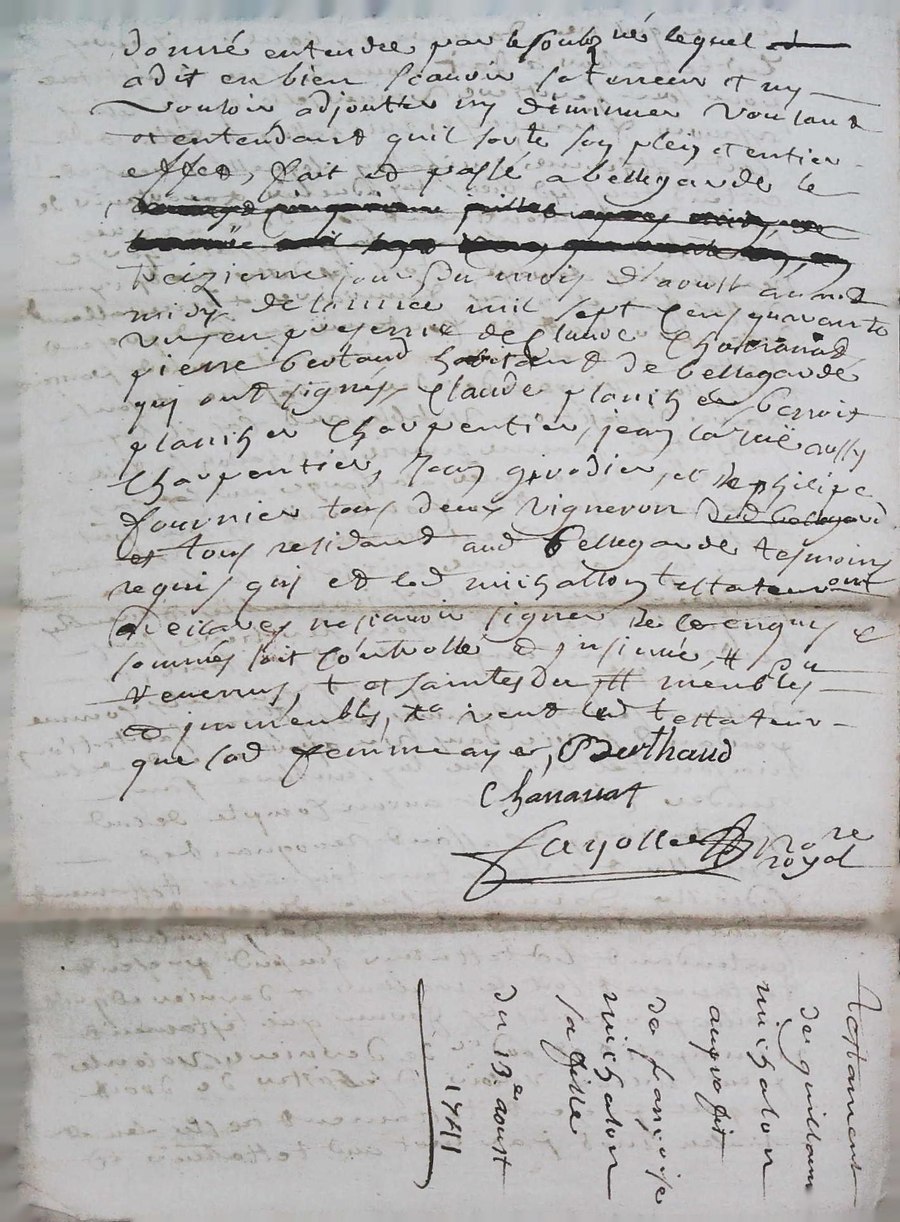 donné entendre par le soubzné lequel
a dit en bien scauoir sa teneur et ny
vouloir adjoutter ny diminuer voulant
et entendant quil sorte son plein et entier
effet, fait et passé a bellegarde le
treizieme jour du mois d'aoust auant
midy de lannee mil sept cens quarante
un en presence de Claude Chananat,
pierre bertaud habitant de bellegarde
qui ont signés, Claude planiher benoit
planiher Charpentier, jean laruë aussy
Charpentier, Jean girodier, et philipe
fournier tous deux vigneron dud bellegard
et tous residant aud Bellegarde tesmoins
requis qui et led michallon testateur ont
declares ne scauoir signer de ce enquis et
sommés soit controllé et insinué, # du
venerens, + et saintes du # meubles
et immeubles, xa veut led testateur
que lad femme aye, Berthaud
Chananat
fayolle No re
royal
Testament
de guillaume
michalon
au profit
de françoise
michalon
sa fille
du 13e aoust
1741